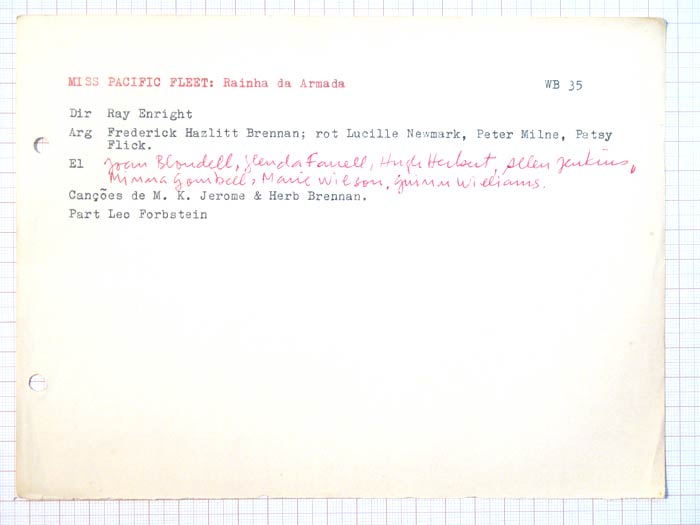 MISS PACIFIC FLEET: Rainha da Armada WB 35
Dir Ray Enright
Arg Frederick Hazlitt Brennan; rot Lucille Newmark, Peter Milne, Patsy
Flick.
El Joan Blondell, Glenda Farrell, Hugh Herbert, Allen Jenkins,
Minna Gombell, Marie Wilson, Guinn Williams.
Canções de M. K. Jerome & Herb Brennan.
Part Leo Forbstein